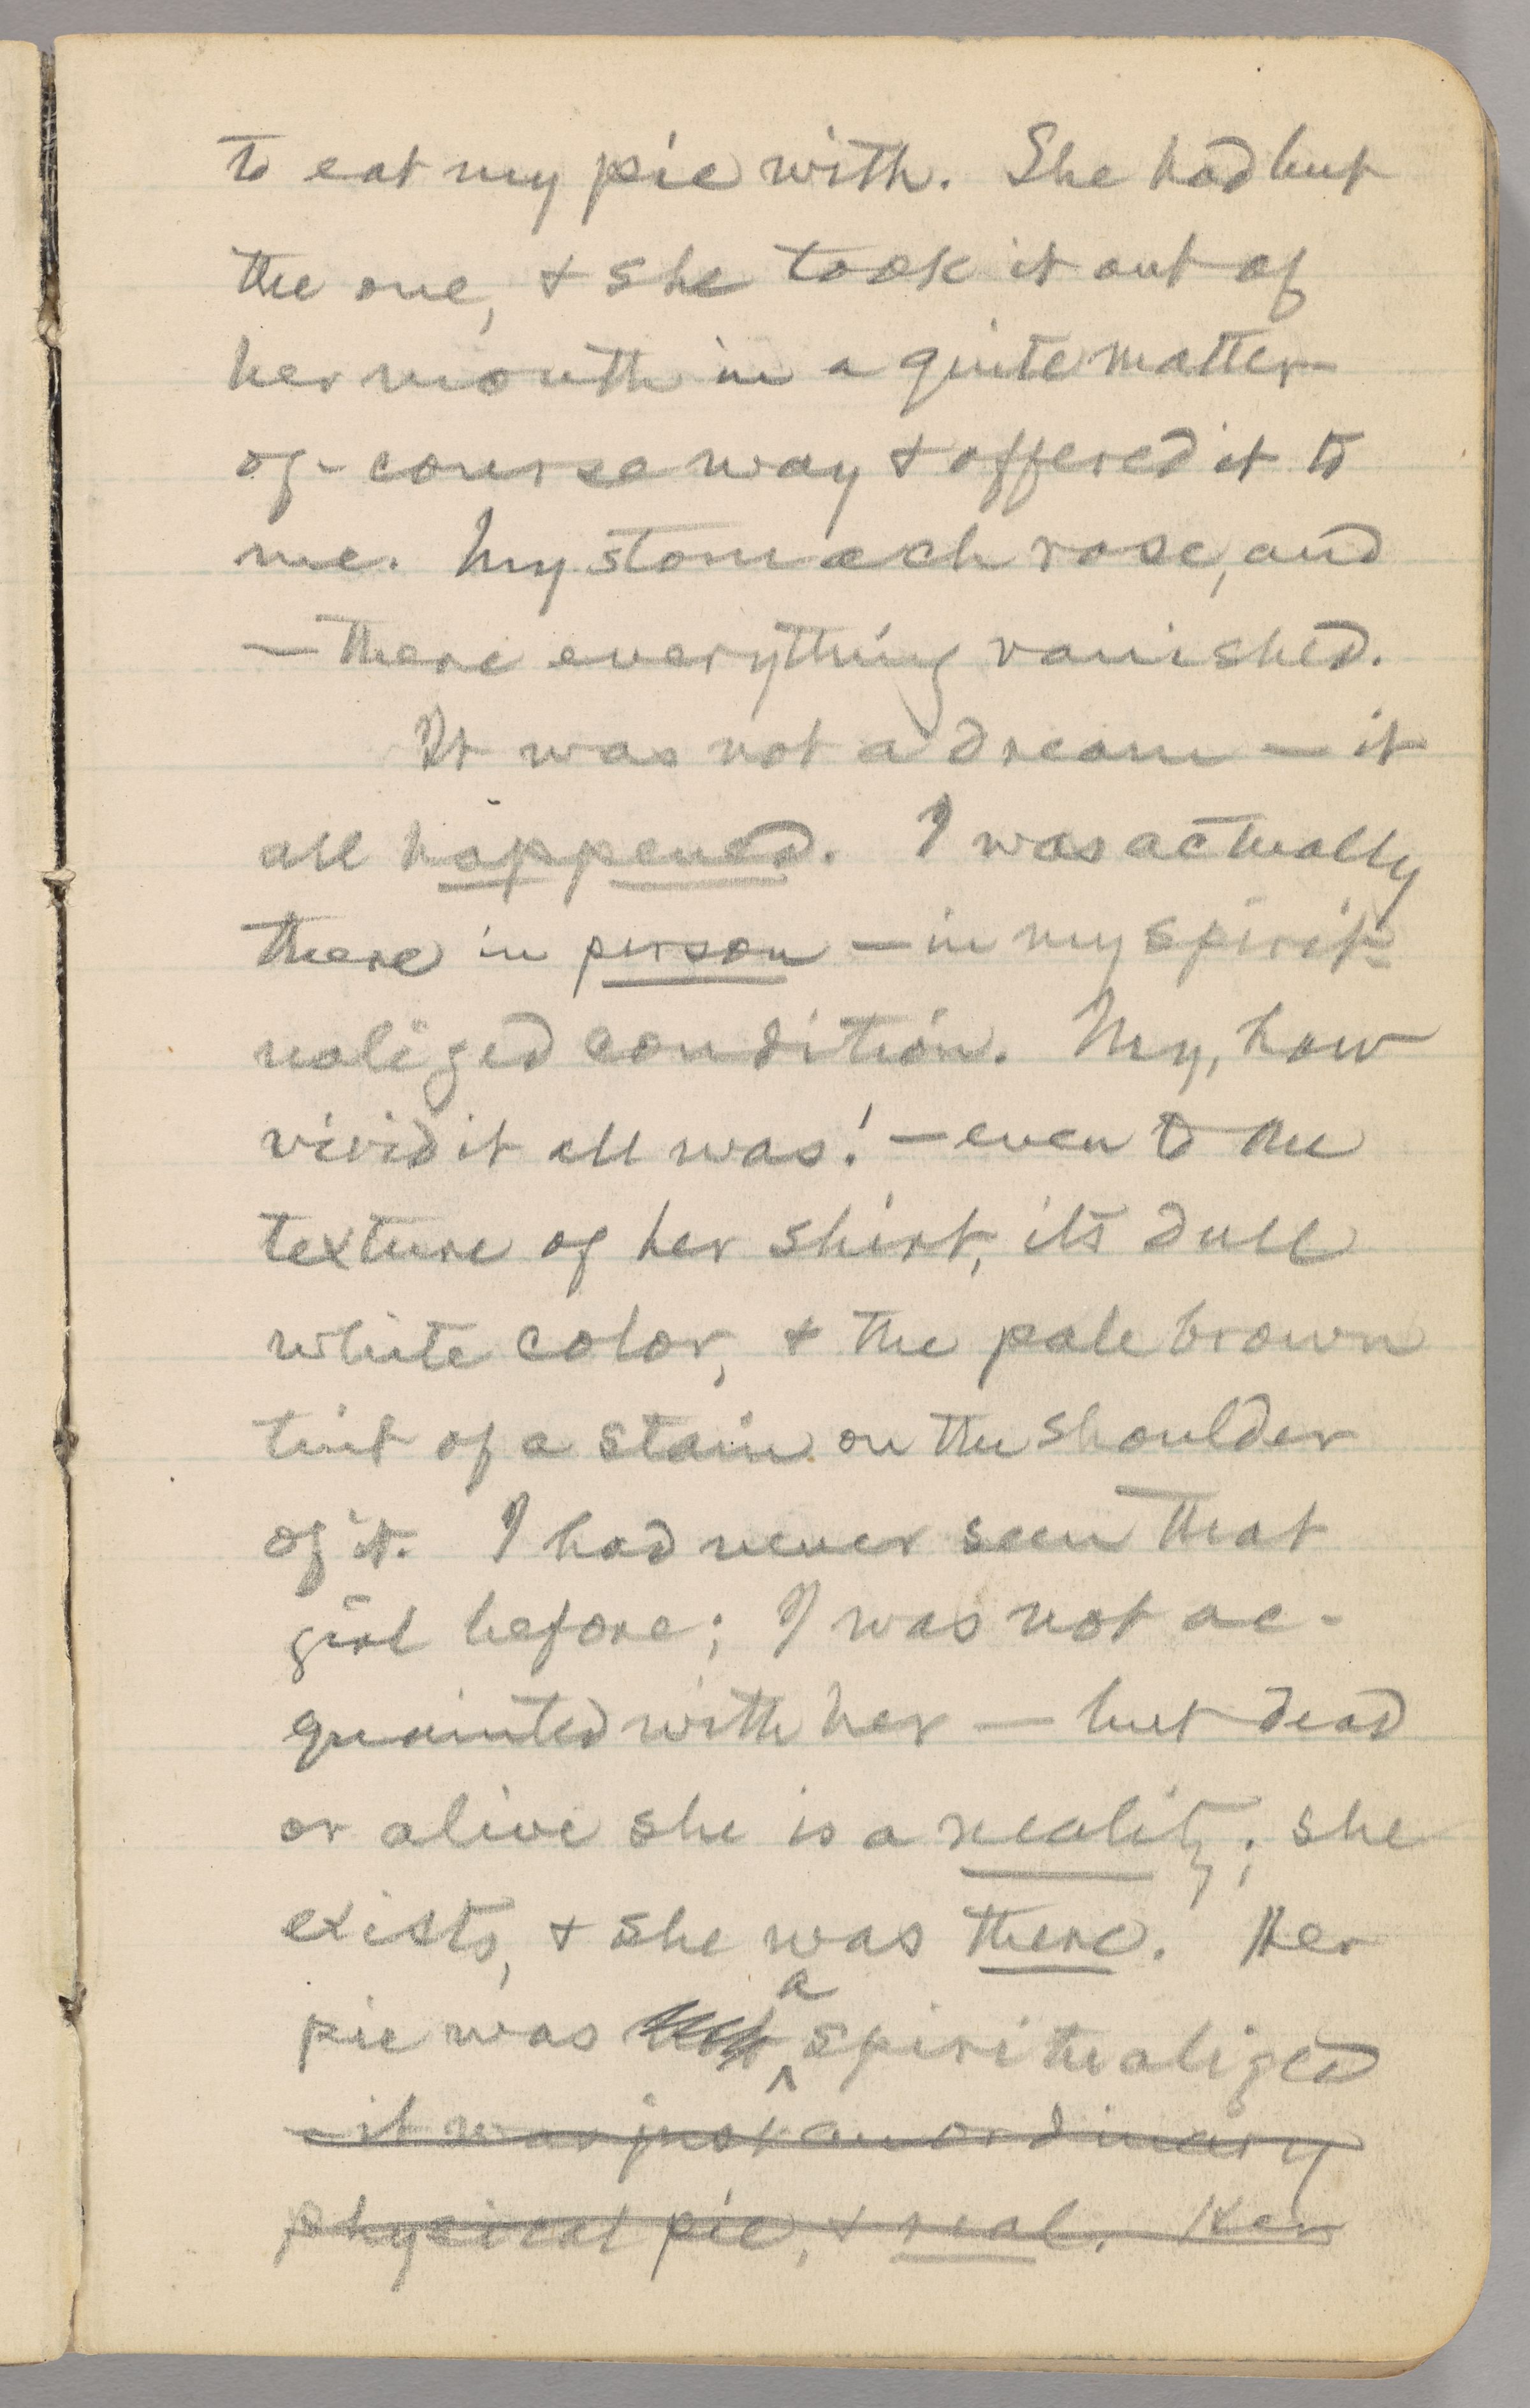 to eat my pie with. She had but
the one, & she took it out of
her mouth in a quite matter-
of-course way & offered it to
me. My stomach rose, and
— there everything vanished.
It was not a dream — it
all happened. I was actually
there in person — in my spirit-
ualized condition. My, how
vivid it all was! — even to the
texture of her shirt, its dull
white color, & the pale brown
tint of a stain on the shoulder
of it. I had never seen that
girl before; I was not ac-
quainted with her — but dead
or alive she is a reality; she
exists, & she was there. Her
pie was a spiritualized
— it was just an ordinary
physical pie, & real. Her